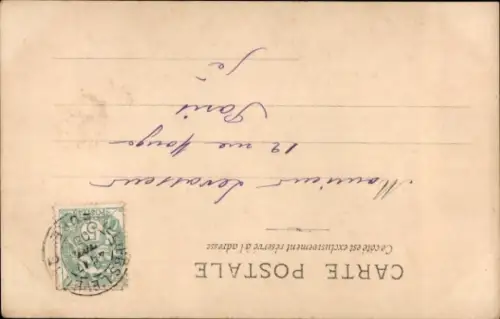 CARTE POSTALE
Ce côté est exclusivement réservé à l'adresse
Monsieur Levasseur
12 rue Monge
Paris
5e